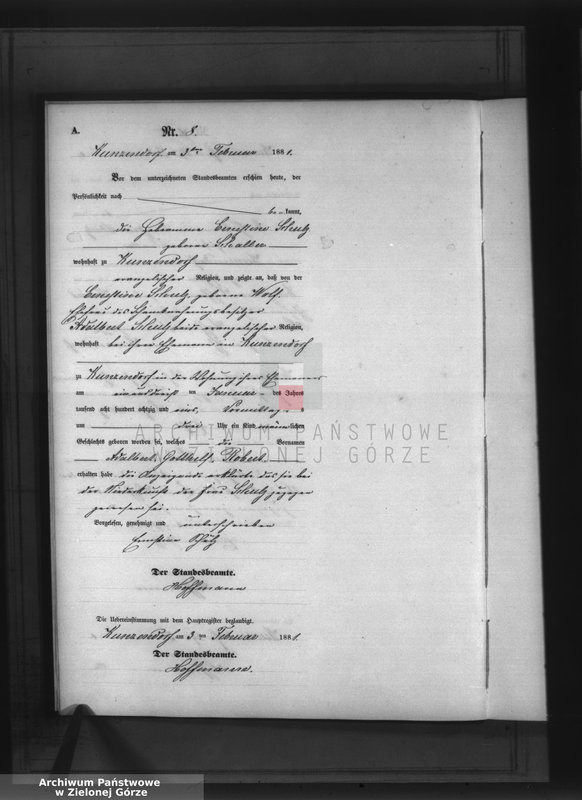 A. Nr. 8.
Kunzendorf am 3ten Februar 1881.
Vor dem unterzeichneten Standesbeamten erschien heute, der
Persönlichkeit nach
be kannt,
die Hebamme Ernestine Schulz
geborene Schaller
wohnhaft zu Kunzendorf
evangelischer Religion, und zeigte an, daß von der
Ernestine Schulz, geborene Wolf,
Ehefrau des
Adalbert Schulz beide evangelischer Religion,
wohnhaft bei ihrem Ehemann in Kunzendorf
zu Kunzendorf in der Wohnung ihres Ehemannes
am einunddreißi ten Januar des Jahres
tausend acht hundert achtzig und eins, Vormittag s
um drei Uhr ein Kind männlichen
Geschlechts geboren worden sei, welches die Vornamen
Adalbert Gotthelf Robert
erhalten habe die Anzeigende erklärte das sie bei
der Niederkunft der Frau Schulz zugegen
gewesen sei.
Vorgelesen, genehmigt und unterschrieben
Ernestine Schulz
Der Standesbeamte.
Hoffmann
Die Uebereinstimmung mit dem Hauptregister beglaubigt.
Kunzendorf am 3 ten Februar 1881.
Der Standesbeamte.
Hoffmann.
ARCHIWUM PAŃSTWOWE
W ZIELONEJ GÓRZE
Archiwum Państwowe
w Zielonej Górze